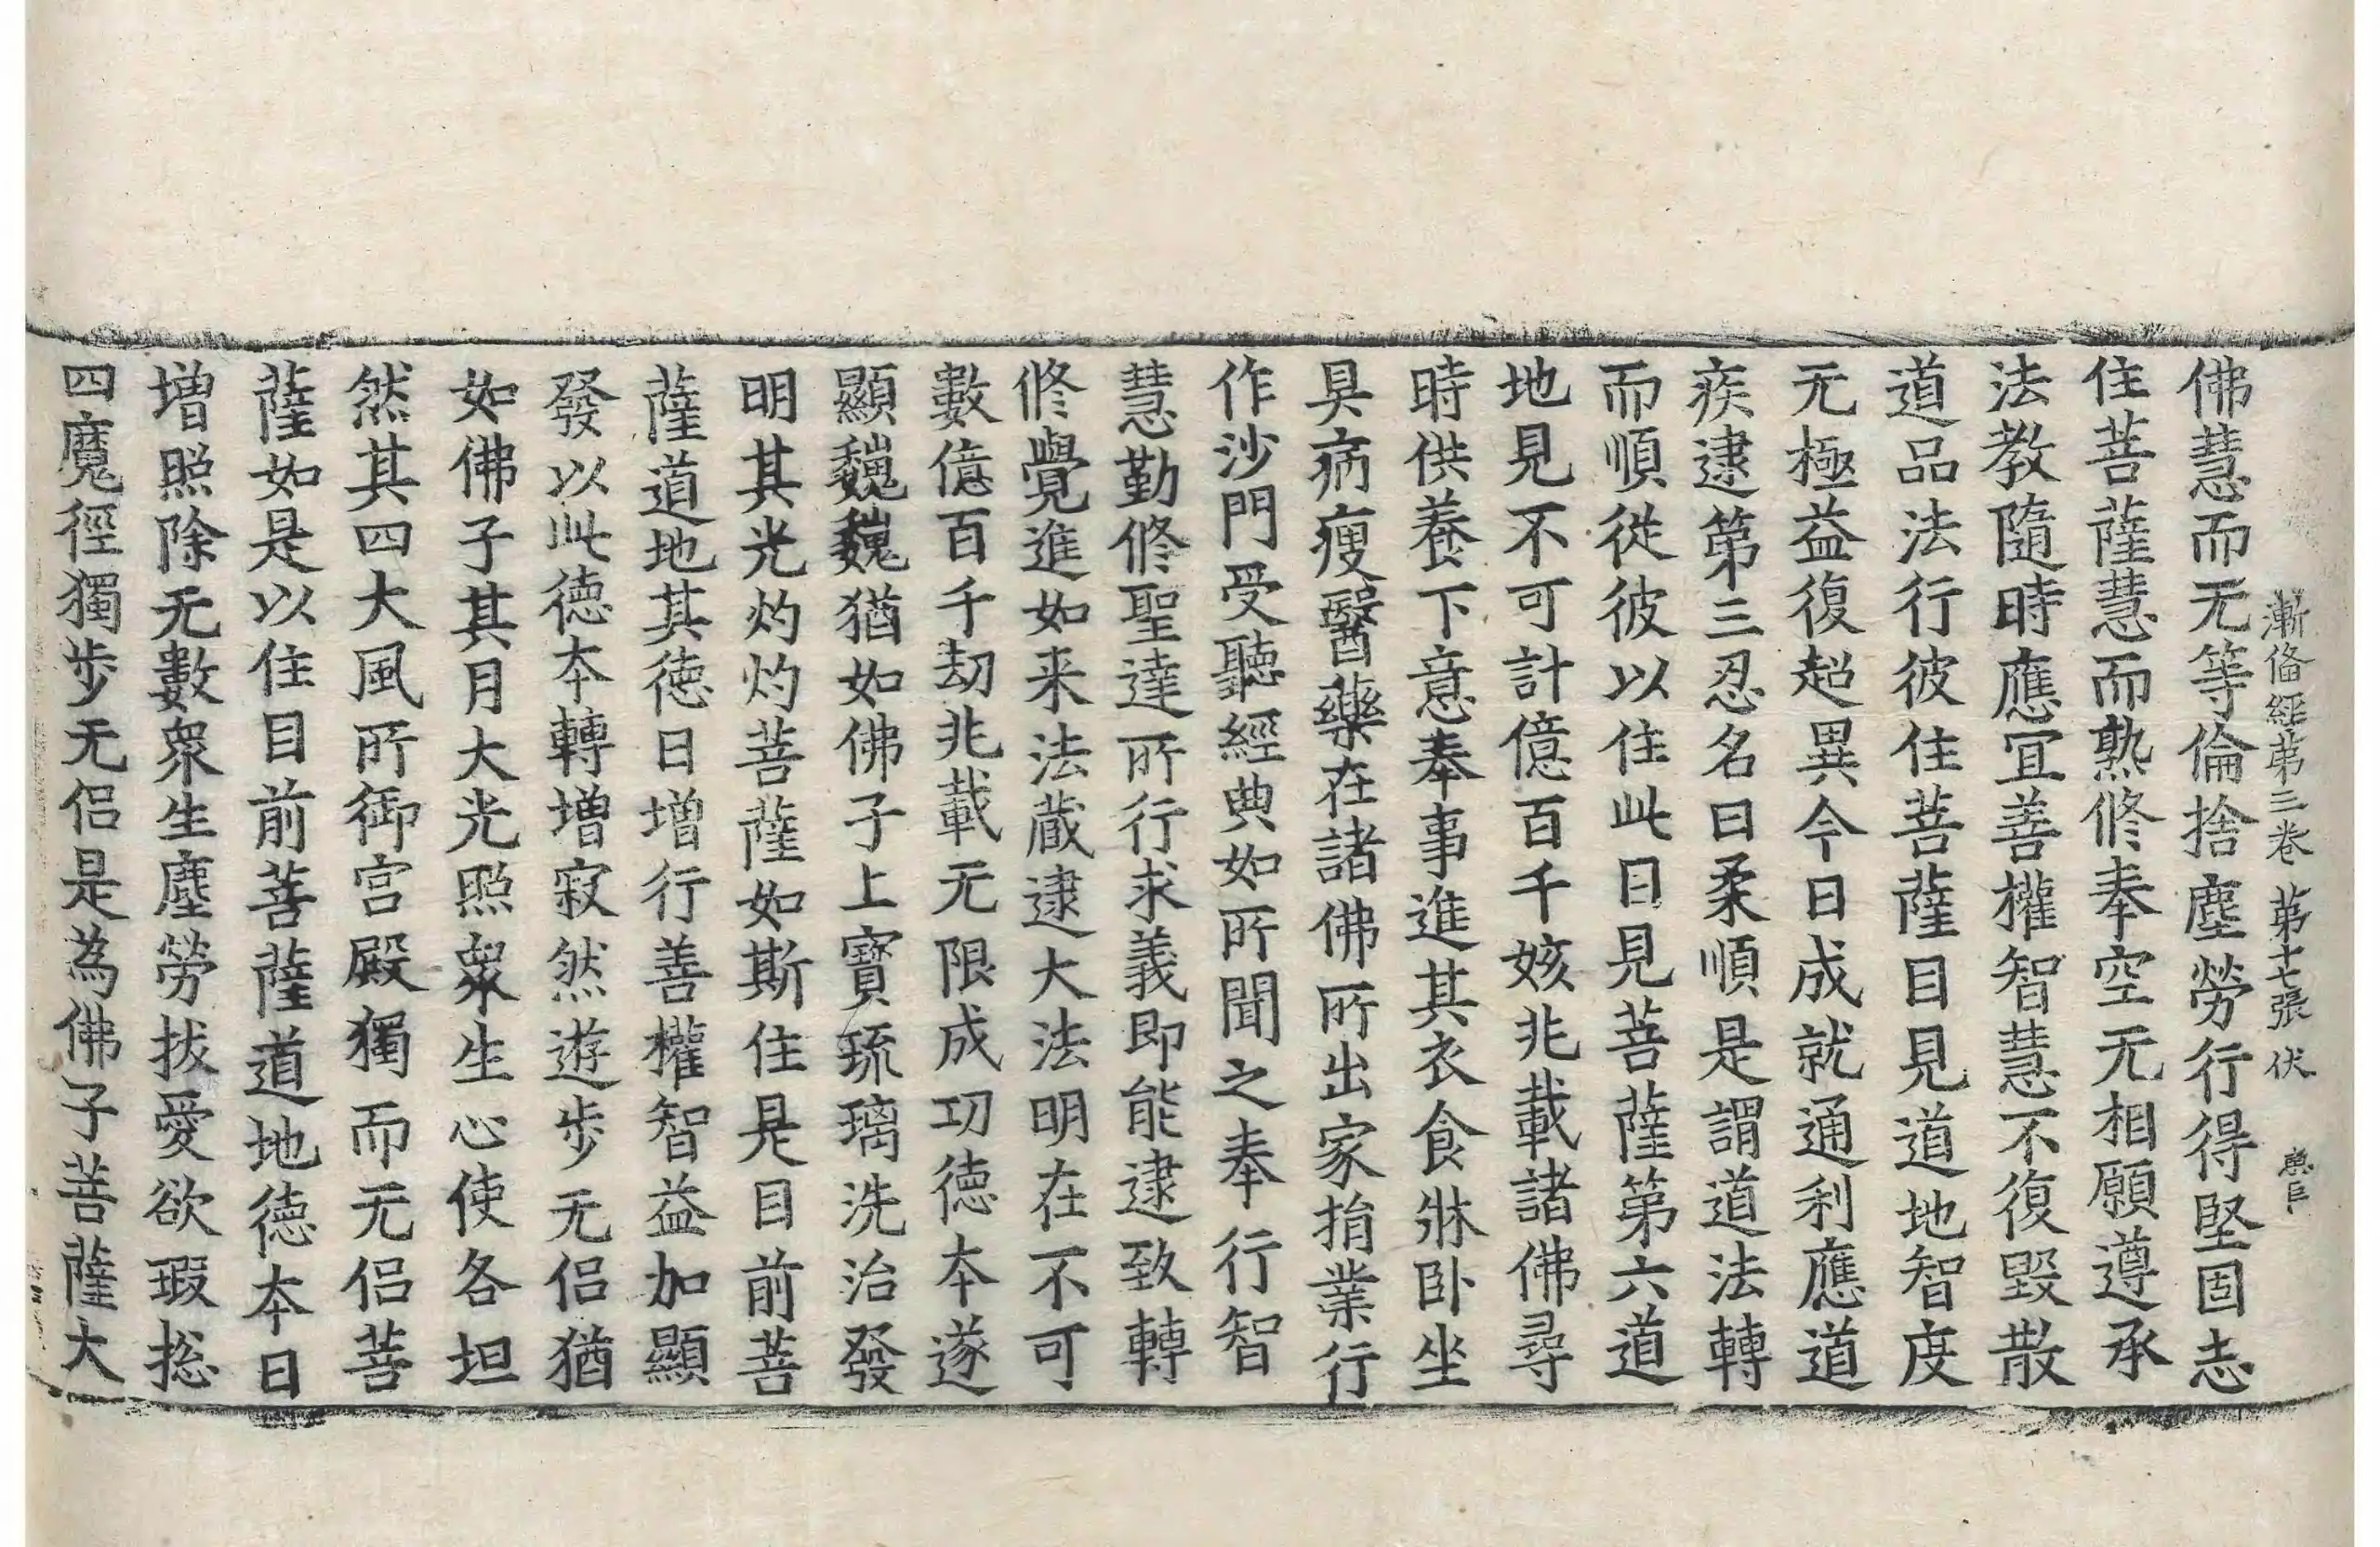 漸備經第三卷 第十七張 伏
佛慧而无等倫捨塵勞行得堅固志
住菩薩慧而熟修奉空无相願遵承
法教隨時應冝善權智慧不復毀散
道品法行彼住菩薩目見道地智度
无極益復超異今日成就通利應道
疾逮第三忍名曰柔順是謂道法轉
而順從彼以住此目見菩薩第六道
地見不可計億百千姟兆載諸佛尋
時供養下意奉事進其衣食牀卧坐
具病瘦醫藥在諸佛所出家捐業行
作沙門受聽經典如所聞之奉行智
慧勤修聖達所行求義即能逮致轉
修覺進如来法蔵逮大法明在不可
數億百千劫兆載无限成功徳本遂
顯巍巍猶如佛子上寶琉璃洗治發
明其光灼灼菩薩如斯住是目前菩
薩道地其徳日增行善權智益加顯
發以此徳本轉增寂然遊步无侣猶
如佛子其月大光照衆生心使各坦
然其四大風所御宫殿獨而无侣菩
薩如是以住目前菩薩道地徳本日
增照除无數衆生塵勞拔愛欲瑕捴
四魔徑獨步无侣是為佛子菩薩大